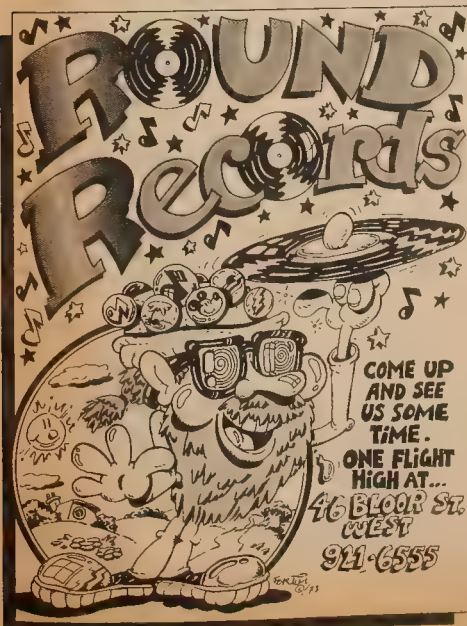 ROUND
RecoRds
COME UP
AND SEE
US SOME
TiME.
ONE FLiGHT
HiGH AT...
46 BLOOR ST.
WEST
921-6555
©/73